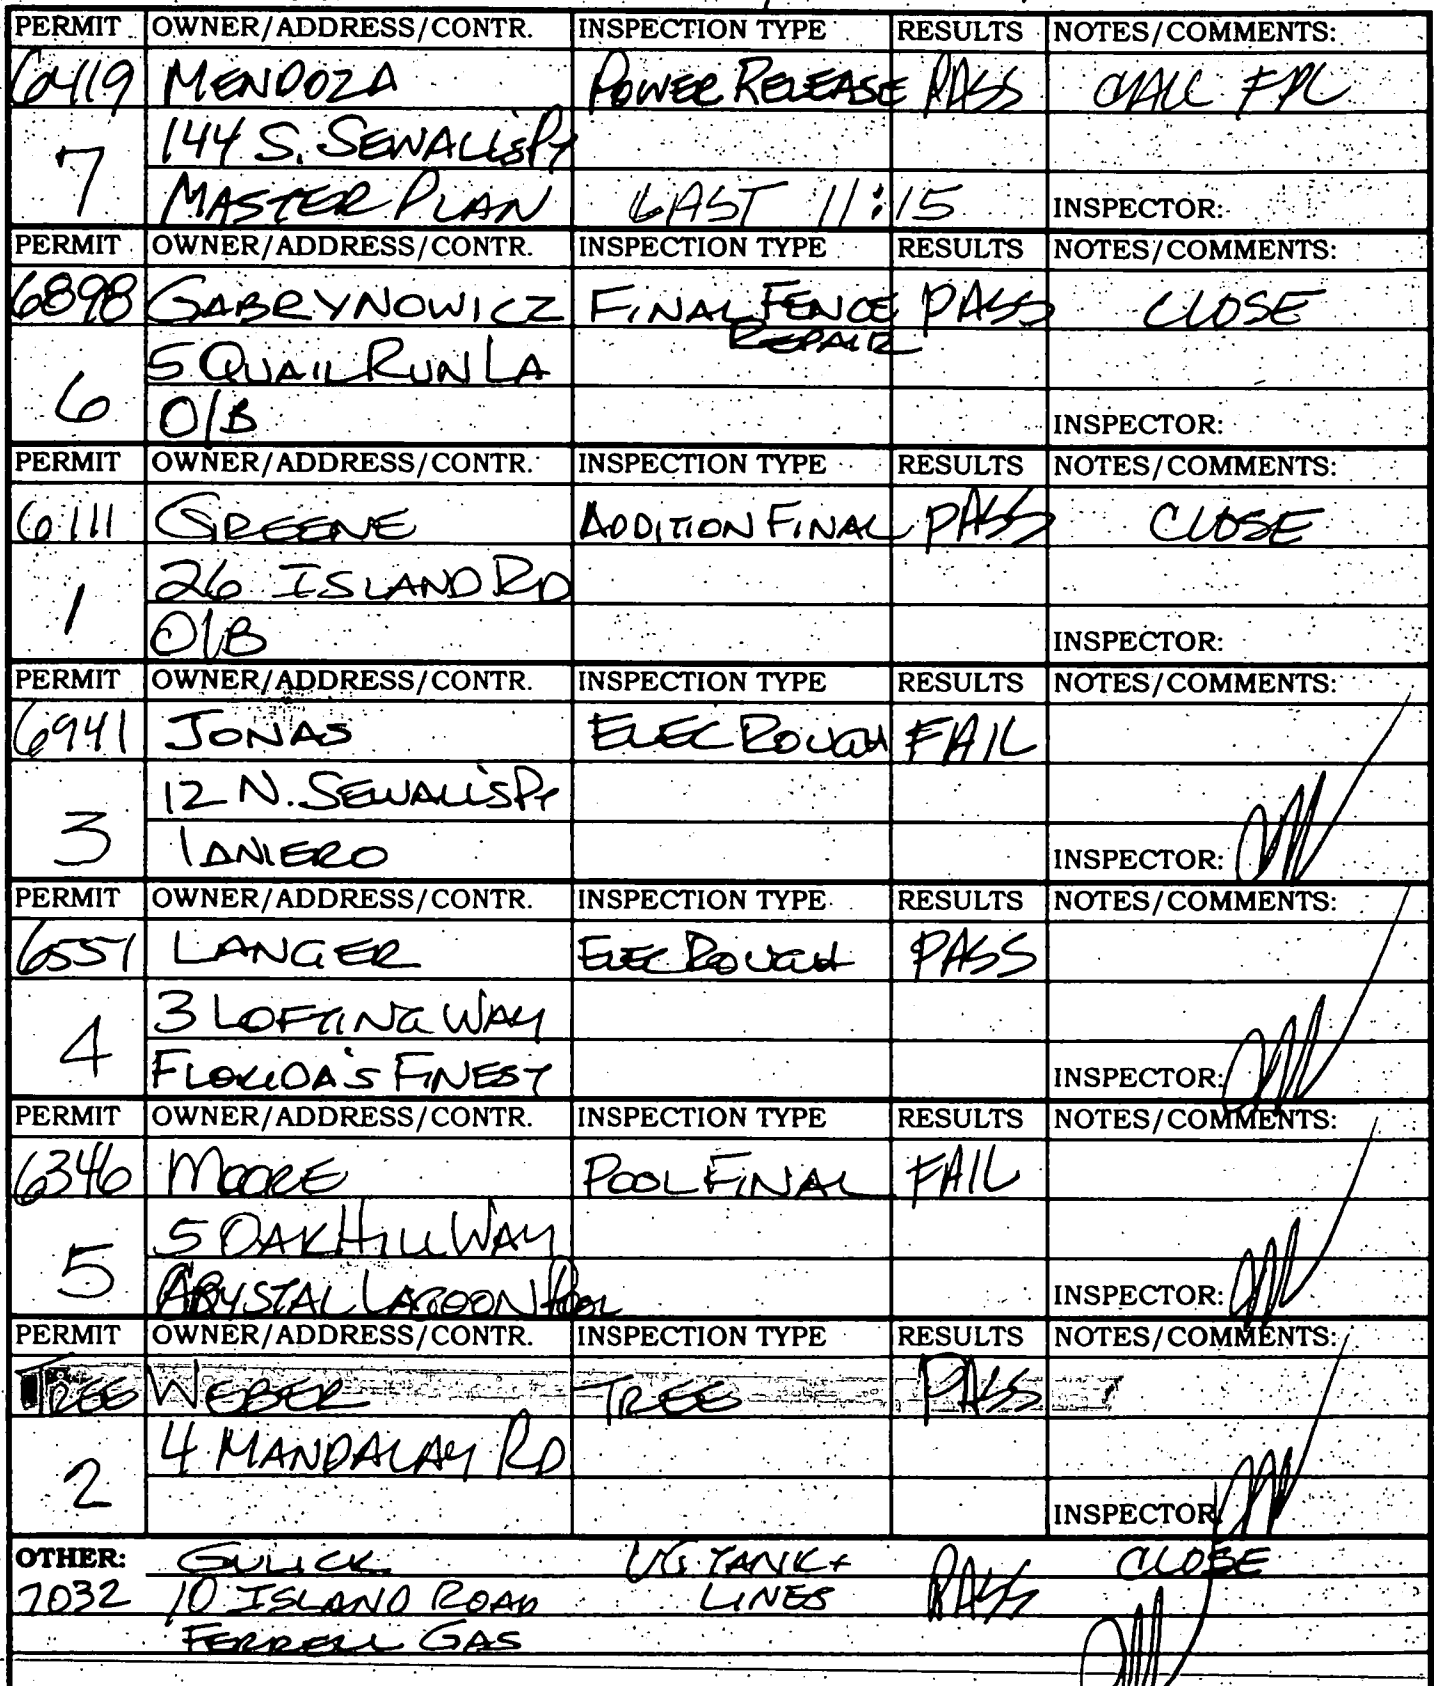 PERMIT OWNER/ADDRESS/CONTR. INSPECTION TYPE RESULTS NOTES/COMMENTS:
6419 MENDOZA POWER RELEASE PASS CALL FPL
144 S. SEWALL'S PT
7 MASTER PLAN LAST 11:15 INSPECTOR:
PERMIT OWNER/ADDRESS/CONTR. INSPECTION TYPE RESULTS NOTES/COMMENTS:
6898 GABRYNOWICZ FINAL FENCE PASS CLOSE
REPAIR
5 QUAIL RUN LA
6 O/B INSPECTOR:
PERMIT OWNER/ADDRESS/CONTR. INSPECTION TYPE RESULTS NOTES/COMMENTS:
6111 GREENE ADDITION FINAL PASS CLOSE
26 ISLAND RD
1 O/B INSPECTOR:
PERMIT OWNER/ADDRESS/CONTR. INSPECTION TYPE RESULTS NOTES/COMMENTS:
6941 JONAS ELEC ROUGH FAIL
12 N. SEWALL'S PT
3 IANIERO INSPECTOR:
PERMIT OWNER/ADDRESS/CONTR. INSPECTION TYPE RESULTS NOTES/COMMENTS:
6557 LANGER ELEC ROUGH PASS
3 LOFTING WAY
4 FLORIDA'S FINEST INSPECTOR:
PERMIT OWNER/ADDRESS/CONTR. INSPECTION TYPE RESULTS NOTES/COMMENTS:
6346 MOORE POOL FINAL FAIL
5 OAK HILL WAY
5 CRYSTAL LAGOON POOL INSPECTOR:
PERMIT OWNER/ADDRESS/CONTR. INSPECTION TYPE RESULTS NOTES/COMMENTS:
TREE WEBER TREES PASS
4 MANDALAY RD
2 INSPECTOR:
OTHER: GULICK UG TANK + CLOSE
7032 10 ISLAND ROAD LINES PASS
FERRELL GAS